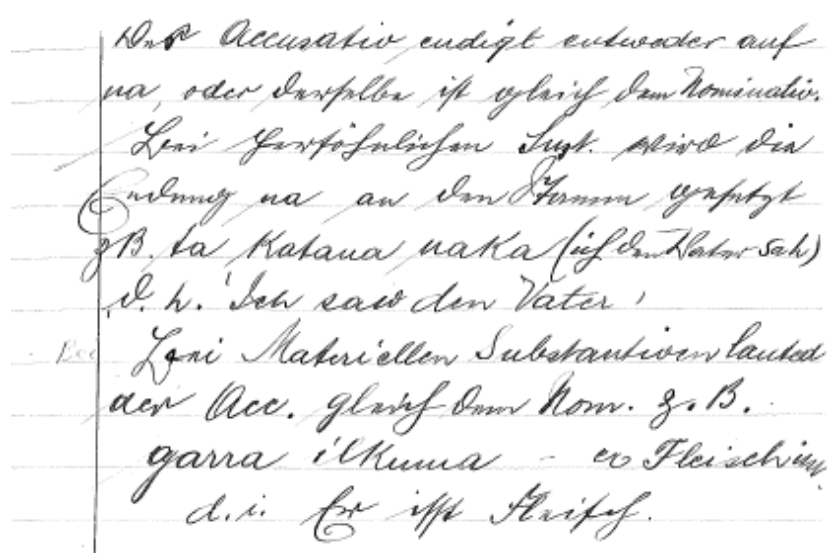 Der Accusativ endigt entweder auf
na, oder derselbe ist gleich dem Nominativ.
Bei persöhnlichen Subst. wird die
Endung na an den Stamm gesetzt
z B. ta Katana naka (ich den Vater sah)
d. h. 'Ich saw den Vater'
Bei Materiellen Substantiven lauted
der Acc. gleich dem Nom. z. B.
garra ilkuma - er Fleisch
d. i. Er isst Fleisch.